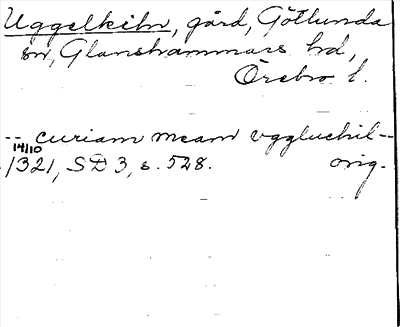 Uggelkiln, gård, Götlunda
sn, Glanshammars hd,
Örebro l.
-- curiam meam vggluchil--
14/10
1321, SD 3, s. 528. orig.